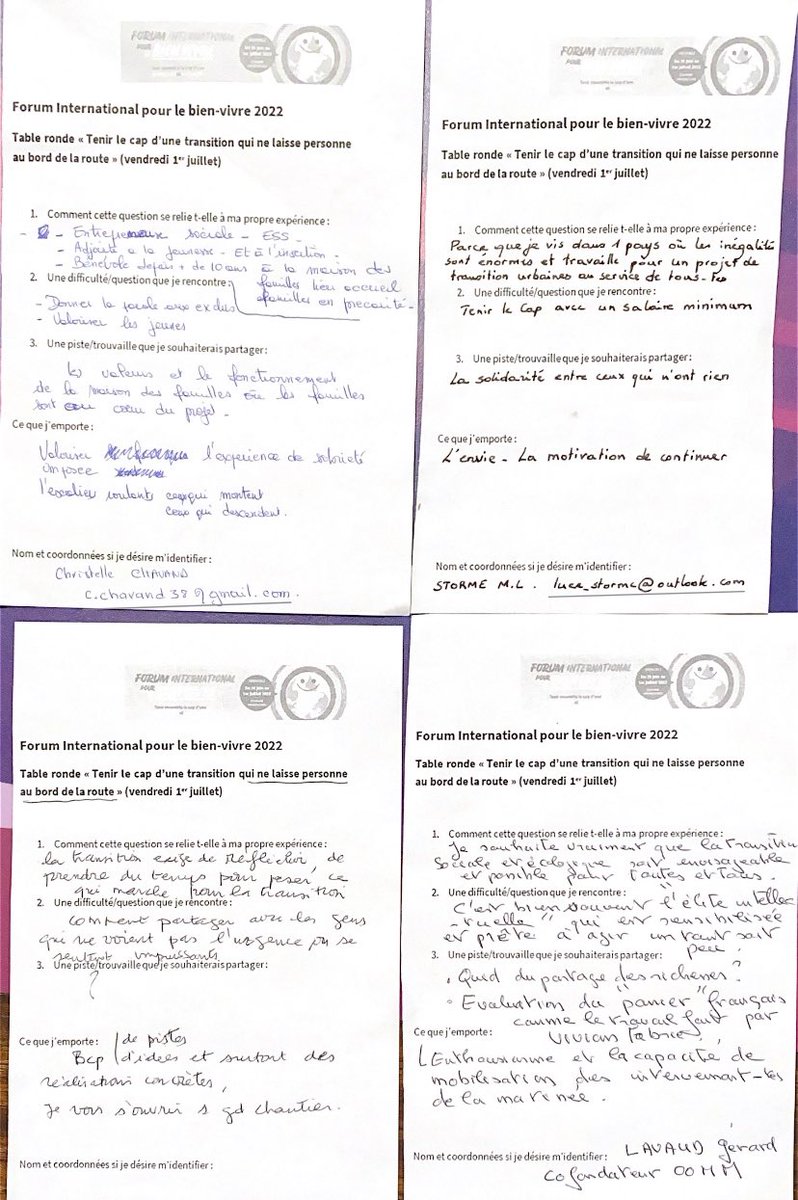 FORUM INTERNATIONAL
POUR
Forum International pour le bien-vivre 2022
Table ronde « Tenir le cap d'une transition qui ne laisse personne
au bord de la route » (vendredi 1er juillet)
1. Comment cette question se relie t-elle à ma propre expérience :
- Entrepreneuse sociale - ESS
- Adjointe a la jeunesse - Et à l'insertion.
- Bénévole depuis + de 10 ans à la maison des
familles lieu accueil
familles en précarité.
2. Une difficulté/question que je rencontre :
- Donner la parole aux exclus
- Valoriser les jeunes
3. Une piste/trouvaille que je souhaiterais partager :
les valeurs et le fonctionnement
de la maison des familles où les familles
sont au cœur du projet.
Ce que j'emporte :
Valoriser l'expérience de sobriété
imposée
l'escalier roulants ceux qui montent
ceux qui descendent.
Nom et coordonnées si je désire m'identifier :
Christelle CHAVAND
c.chavand 38 @gmail.com.
FORUM INTERNATIONAL
POUR
Forum International pour le bien-vivre 2022
Table ronde « Tenir le cap d'une transition qui ne laisse personne
au bord de la route » (vendredi 1er juillet)
1. Comment cette question se relie t-elle à ma propre expérience :
Parce que je vis dans 1 pays où les inégalité
sont énormes et travaille pour un projet de
transition urbaines au service de tous-tes
2. Une difficulté/question que je rencontre :
Tenir le Cap avec un salaire minimum
3. Une piste/trouvaille que je souhaiterais partager :
La solidarité entre ceux qui n'ont rien
Ce que j'emporte :
L'envie - La motivation de continuer
Nom et coordonnées si je désire m'identifier :
STORME M.L. luca_storme@outlook.com
FORUM INTERNATIONAL
POUR
Forum International pour le bien-vivre 2022
Table ronde « Tenir le cap d'une transition qui ne laisse personne
au bord de la route » (vendredi 1er juillet)
1. Comment cette question se relie t-elle à ma propre expérience :
la transition exige de réfléchir, de
prendre du temps pour peser ce
qui marche pour la transition
2. Une difficulté/question que je rencontre :
comment partager avec les gens
qui ne voient pas l'urgence ou se
sentent impuissants
3. Une piste/trouvaille que je souhaiterais partager :
?
Ce que j'emporte :
Bcp de pistes
d'idées et surtout des
réalisations concrètes,
Je vois s'ouvrir 1 gd chantier.
Nom et coordonnées si je désire m'identifier :
FORUM INTERNATIONAL
POUR
Forum International pour le bien-vivre 2022
Table ronde « Tenir le cap d'une transition qui ne laisse personne
au bord de la route » (vendredi 1er juillet)
1. Comment cette question se relie t-elle à ma propre expérience :
Je souhaite vraiment que la transition
sociale et écologique soit envisageable
et possible pour toutes et tous.
2. Une difficulté/question que je rencontre :
C'est bien souvent "l'élite intellec
-tuelle" qui est sensibilisée
et prête à agir un tant soit
peu.
3. Une piste/trouvaille que je souhaiterais partager :
. Quid du partage des richesses ?
° Evaluation du "panier" français
comme le travail fait par
Vivians
Ce que j'emporte :
L'Enthousiasme et la capacité de
mobilisation des intervenant-tes
de la matinée.
Nom et coordonnées si je désire m'identifier :
LAVAUD Gérard
Cofondateur OOMM